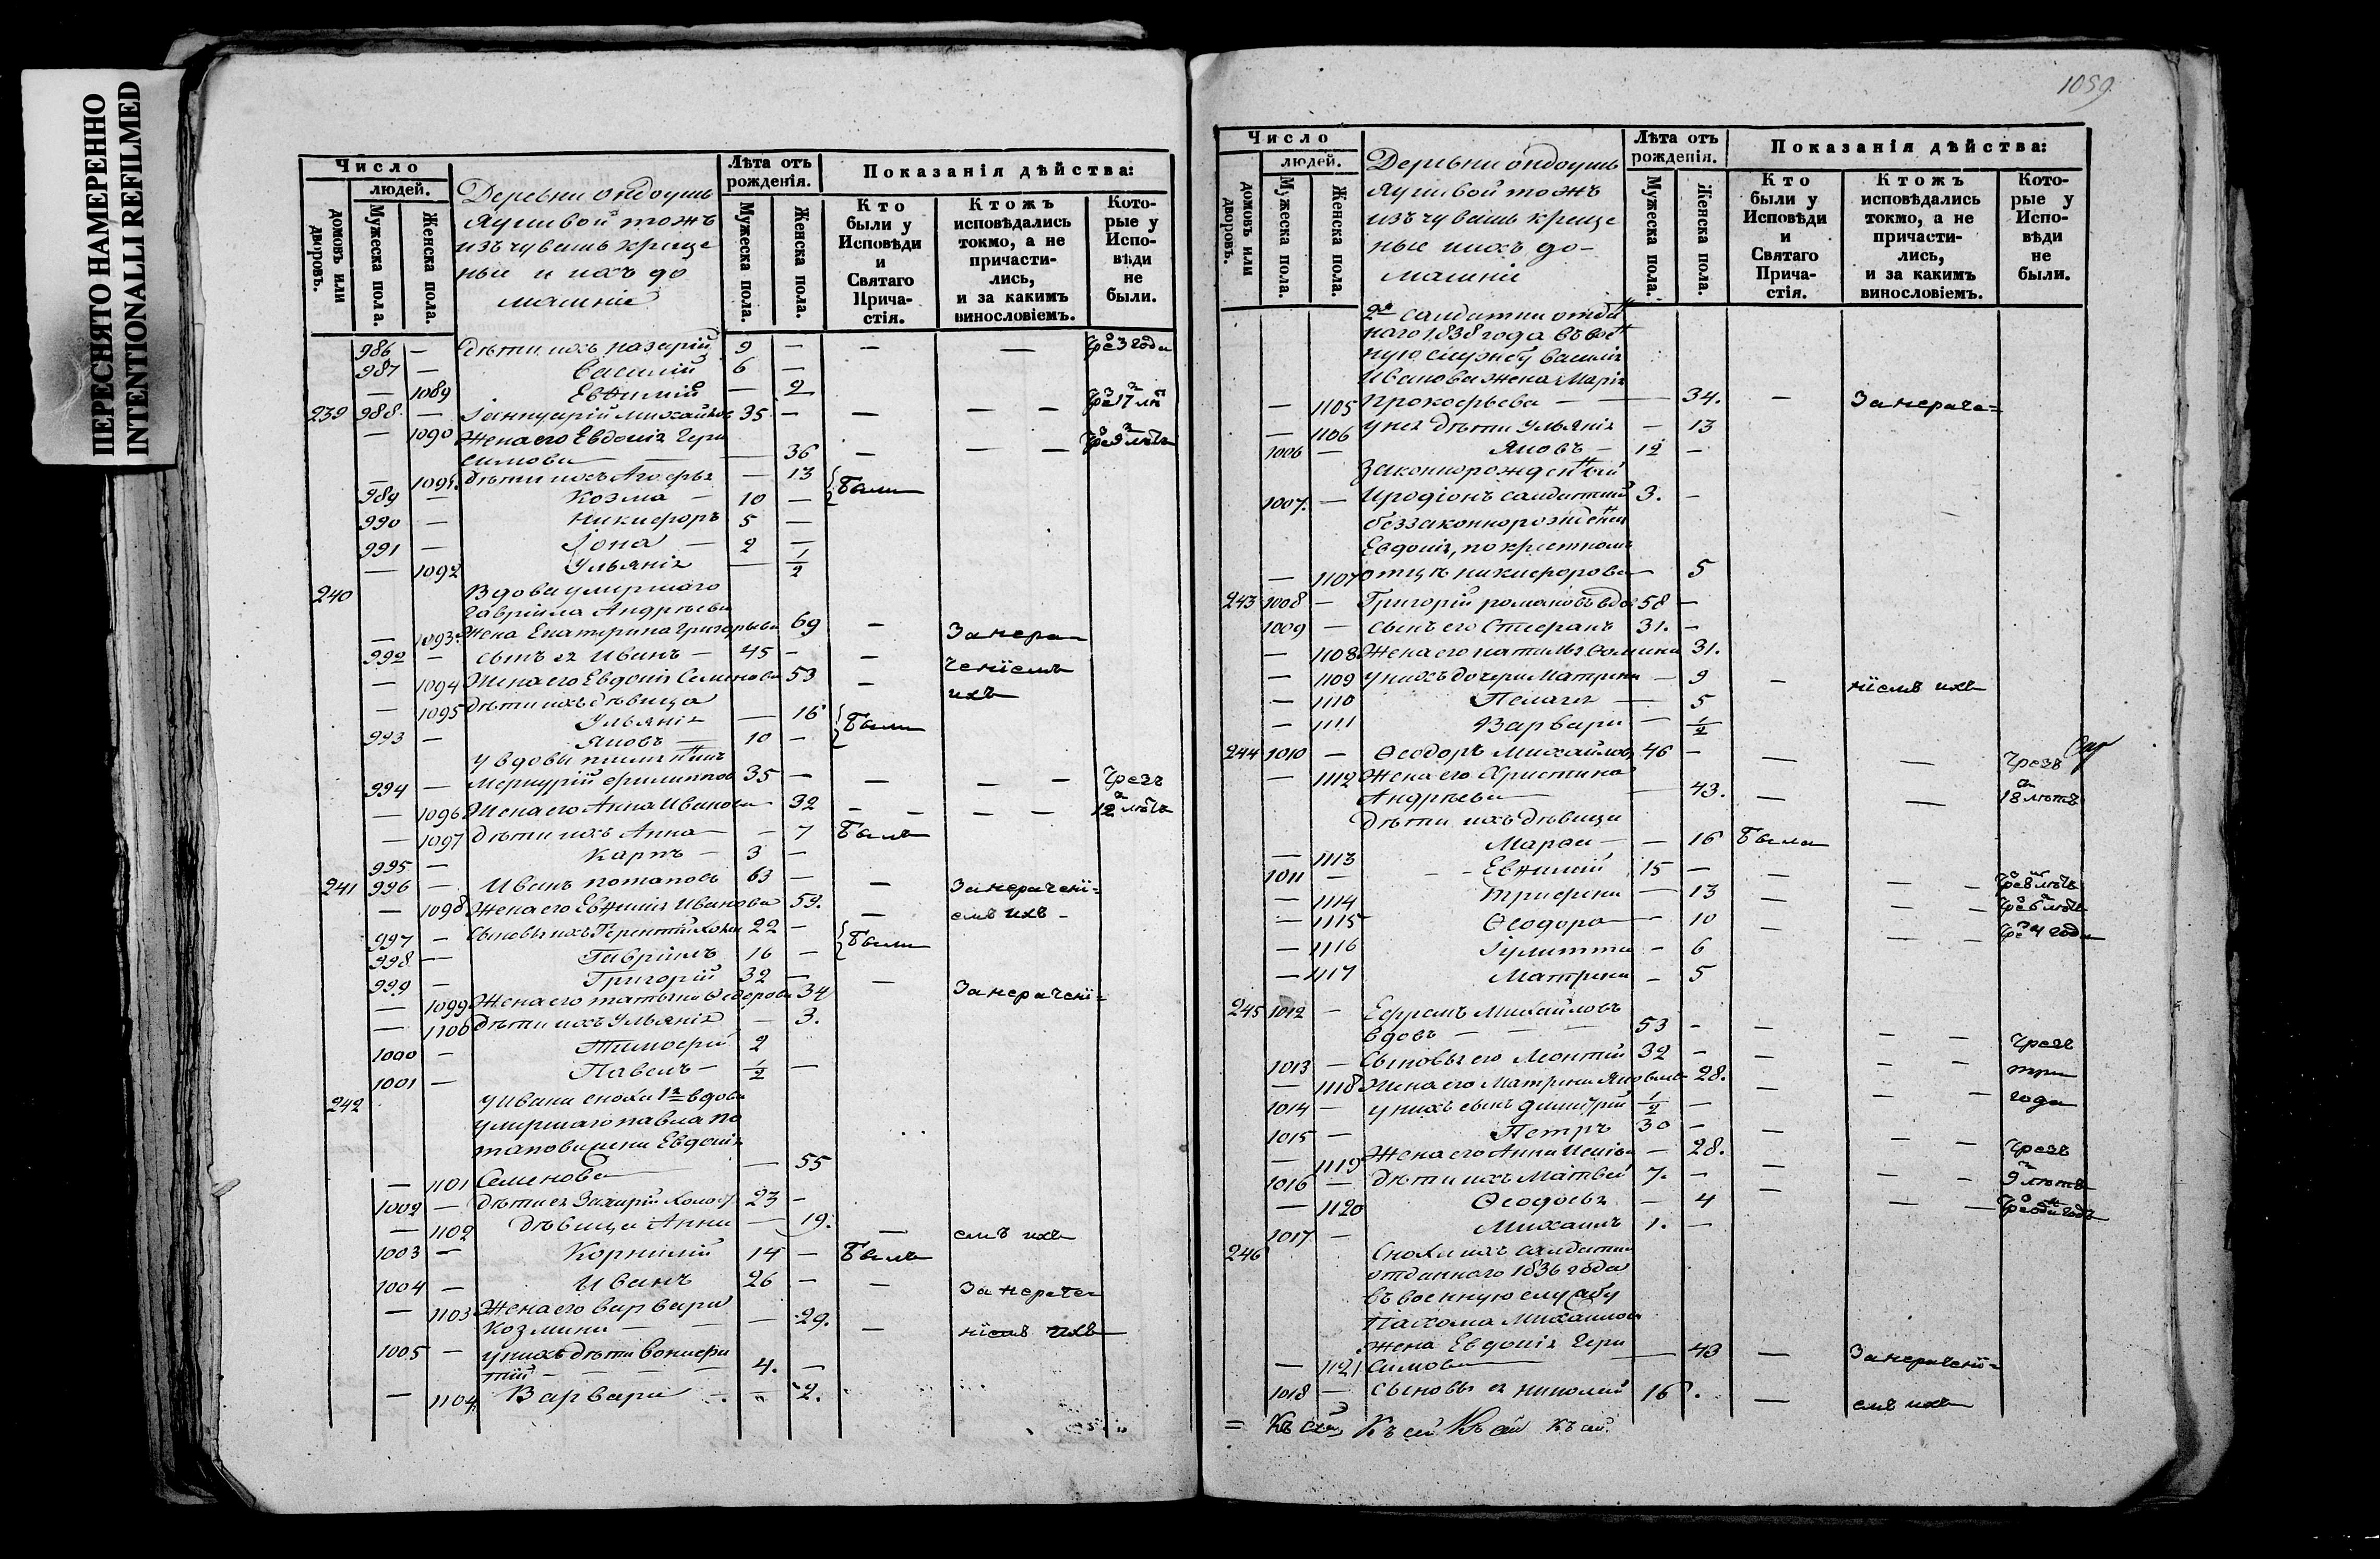 ПЕРЕСНЯТО НАМЕРЕННО
INTENTIONALLI REFILMED
Число
людей.
домовъ или дворовъ.
Мужеска пола.
Женска пола.
Деревни
тожъ
изъ чувашъ креще
ные и ихъ до
машніе
Лѣта отъ рожденія.
Мужеска пола.
Женска пола.
Показанія дѣйства:
Кто были у Исповѣди и Святаго Прича- стія.
Ктожъ исповѣдались токмо, а не причасти- лись, и за какимъ винословіемъ.
Кото- рые у Испо- вѣди не были.
986 — дѣти ихъ назарій 9 — — — 3 года
987 — Василій 6 —
— 1089 Евѳимій — 2
239 988 — Іаннуарій Михайлов 35 — — — — 17
— 1090 Жена его Евдокія Гера
симова — 36 — — —
— 1091 дѣти ихъ — 13 Были
989 — Козма — 10 —
990 — Никифоръ 5 —
991 — Іона — 2 —
— 1092 Ульянія — 1/2
240 Вдова умершаго
Гавріила Андреева
— 1093 Жена Екатерина Григорьева 69 — За нера-
992 — сынъ ея Иванъ — 45 — — ченіемъ
— 1094 Жена его Евдокія Семенова 53 — ихъ
— 1095 дѣти ихъ дѣвица
Ульянія — 16 Были
993 — Яковъ — 10 —
у вдовы
994 — Меркурій филиппов 35 — — — — Чрезъ
— 1096 Жена его Анна Иванова 32 — — — 12 лѣтъ
— 1097 дѣти ихъ Анна — — 7 Былъ
995 — Карпъ — 3 —
241 996 — Иванъ потаповъ 63 — — За нерачені=
— 1098 Жена его Евѳимія Иванова 59. — емъ ихъ —
997 — Сыновья ихъ Терентій 22 — Были
998 — Гавріилъ 16 —
999 — Григорій 32 — — За нерачені=
— 1099 Жена его татьяна Ѳедорова 34
— 1100 дѣти ихъ Ульянія — 3.
1000 — Тимофей 2
1001 — Павелъ — 1/2 —
242 у Ивана сноха 1я вдова
умершаго павла по
тапова жена Евдокія
— 1101 Семенова — 55
1002 — дѣти ея Захарій 23 —
— 1102 дѣвица Анна — 19. — емъ ихъ
1003 — Корнилій 14 — Былъ
1004 — Иванъ 26 — — За нераче-
— 1103 Жена его варвара
Козмина — — 29. — ніемъ ихъ
1005 — у нихъ дѣти вонифа
тій — — — 4. —
— 1104 Варвара — 2.
1059
Число
людей.
домовъ или дворовъ.
Мужеска пола.
Женска пола.
Деревни
тожъ
изъ чувашъ креще
ные и ихъ до-
машніе
Лѣта отъ рожденія.
Мужеска пола.
Женска пола.
Показанія дѣйства:
Кто были у Исповѣди и Святаго Прича- стія.
Ктожъ исповѣдались токмо, а не причасти- лись, и за какимъ винословіемъ.
Кото- рые у Испо- вѣди не были.
2я салдатка отда
наго 1838 года въ вое
ную службу василія
Иванова жена Марія
— 1105 Прокофьева — — 34. — За нераче=
— 1106 у нея дѣти Ульянія — 13
1006 — Яковъ — 12 —
Законнорожденный
1007. — Иродіонъ салдатскій 3. —
беззаконнорожденная
Евдокія, по крестному
— 1107 отцѣ никифорова — 5
243 1008 — Григорій романовъ вдов 58 —
1009 — сынъ его Стефанъ 31. —
— 1108 Жена его наталья Ѳомина 31.
— 1109 у нихъ дочери Матрена — 9 — ніемъ ихъ
— 1110 Пелагея — 5
— 1111 Варвара — 1/2
244 1010 — Ѳеодоръ Михайловъ 46 — — — Чрезъ
— 1112 Жена его Христина
Андреева — 43. — — 18 лѣтъ
дѣти ихъ дѣвица
— 1113 Марфа — — 16 Была
1011 — Евѳимій 15 — — — —
— 1114 Трифена — 13 — — —
— 1115 Ѳеодора — 10 — — — 4 года
— 1116 Іулитта — 6
— 1117 Матрена — 5
245 1012 — Ефремъ Михайловъ
вдовъ — — 53 — — — — Чрезъ
1013 — Сыновья его Леонтій 32 — — — — три
— 1118 Жена его Матрена Яковлева 28. — — — года
1014 — у нихъ сынъ димитрій 1/2 —
1015 — Петръ 30 — — — — Чрезъ
— 1119 Жена его Анна — 28. — — — 9 лѣтъ
1016 — дѣти ихъ Матвей 7. — — — —
— 1120 Ѳеодосья — 4
1017 — Михаилъ 1. —
246 Сноха ихъ салдатка
отданнаго 1836 года
въ военную службу
Пахома Михайлова
жена Евдокія Гера
— 1121 Симова — 43 — За нерачені=
1018 — сыновья ея николай 16. — емъ ихъ
= Къ сей Къ сей Къ сей Къ сей